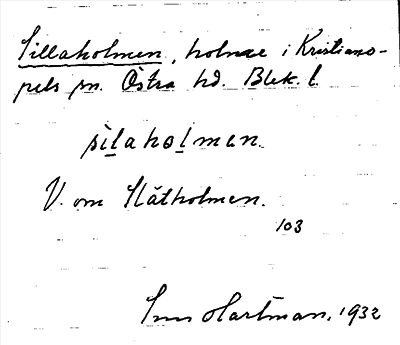 Sillaholmen, holme i Kristiano-
pels sn. Östra hd. Blek. l.
sìlahòlmen.
V. om Slätholmen.
103
Hartman, 1932